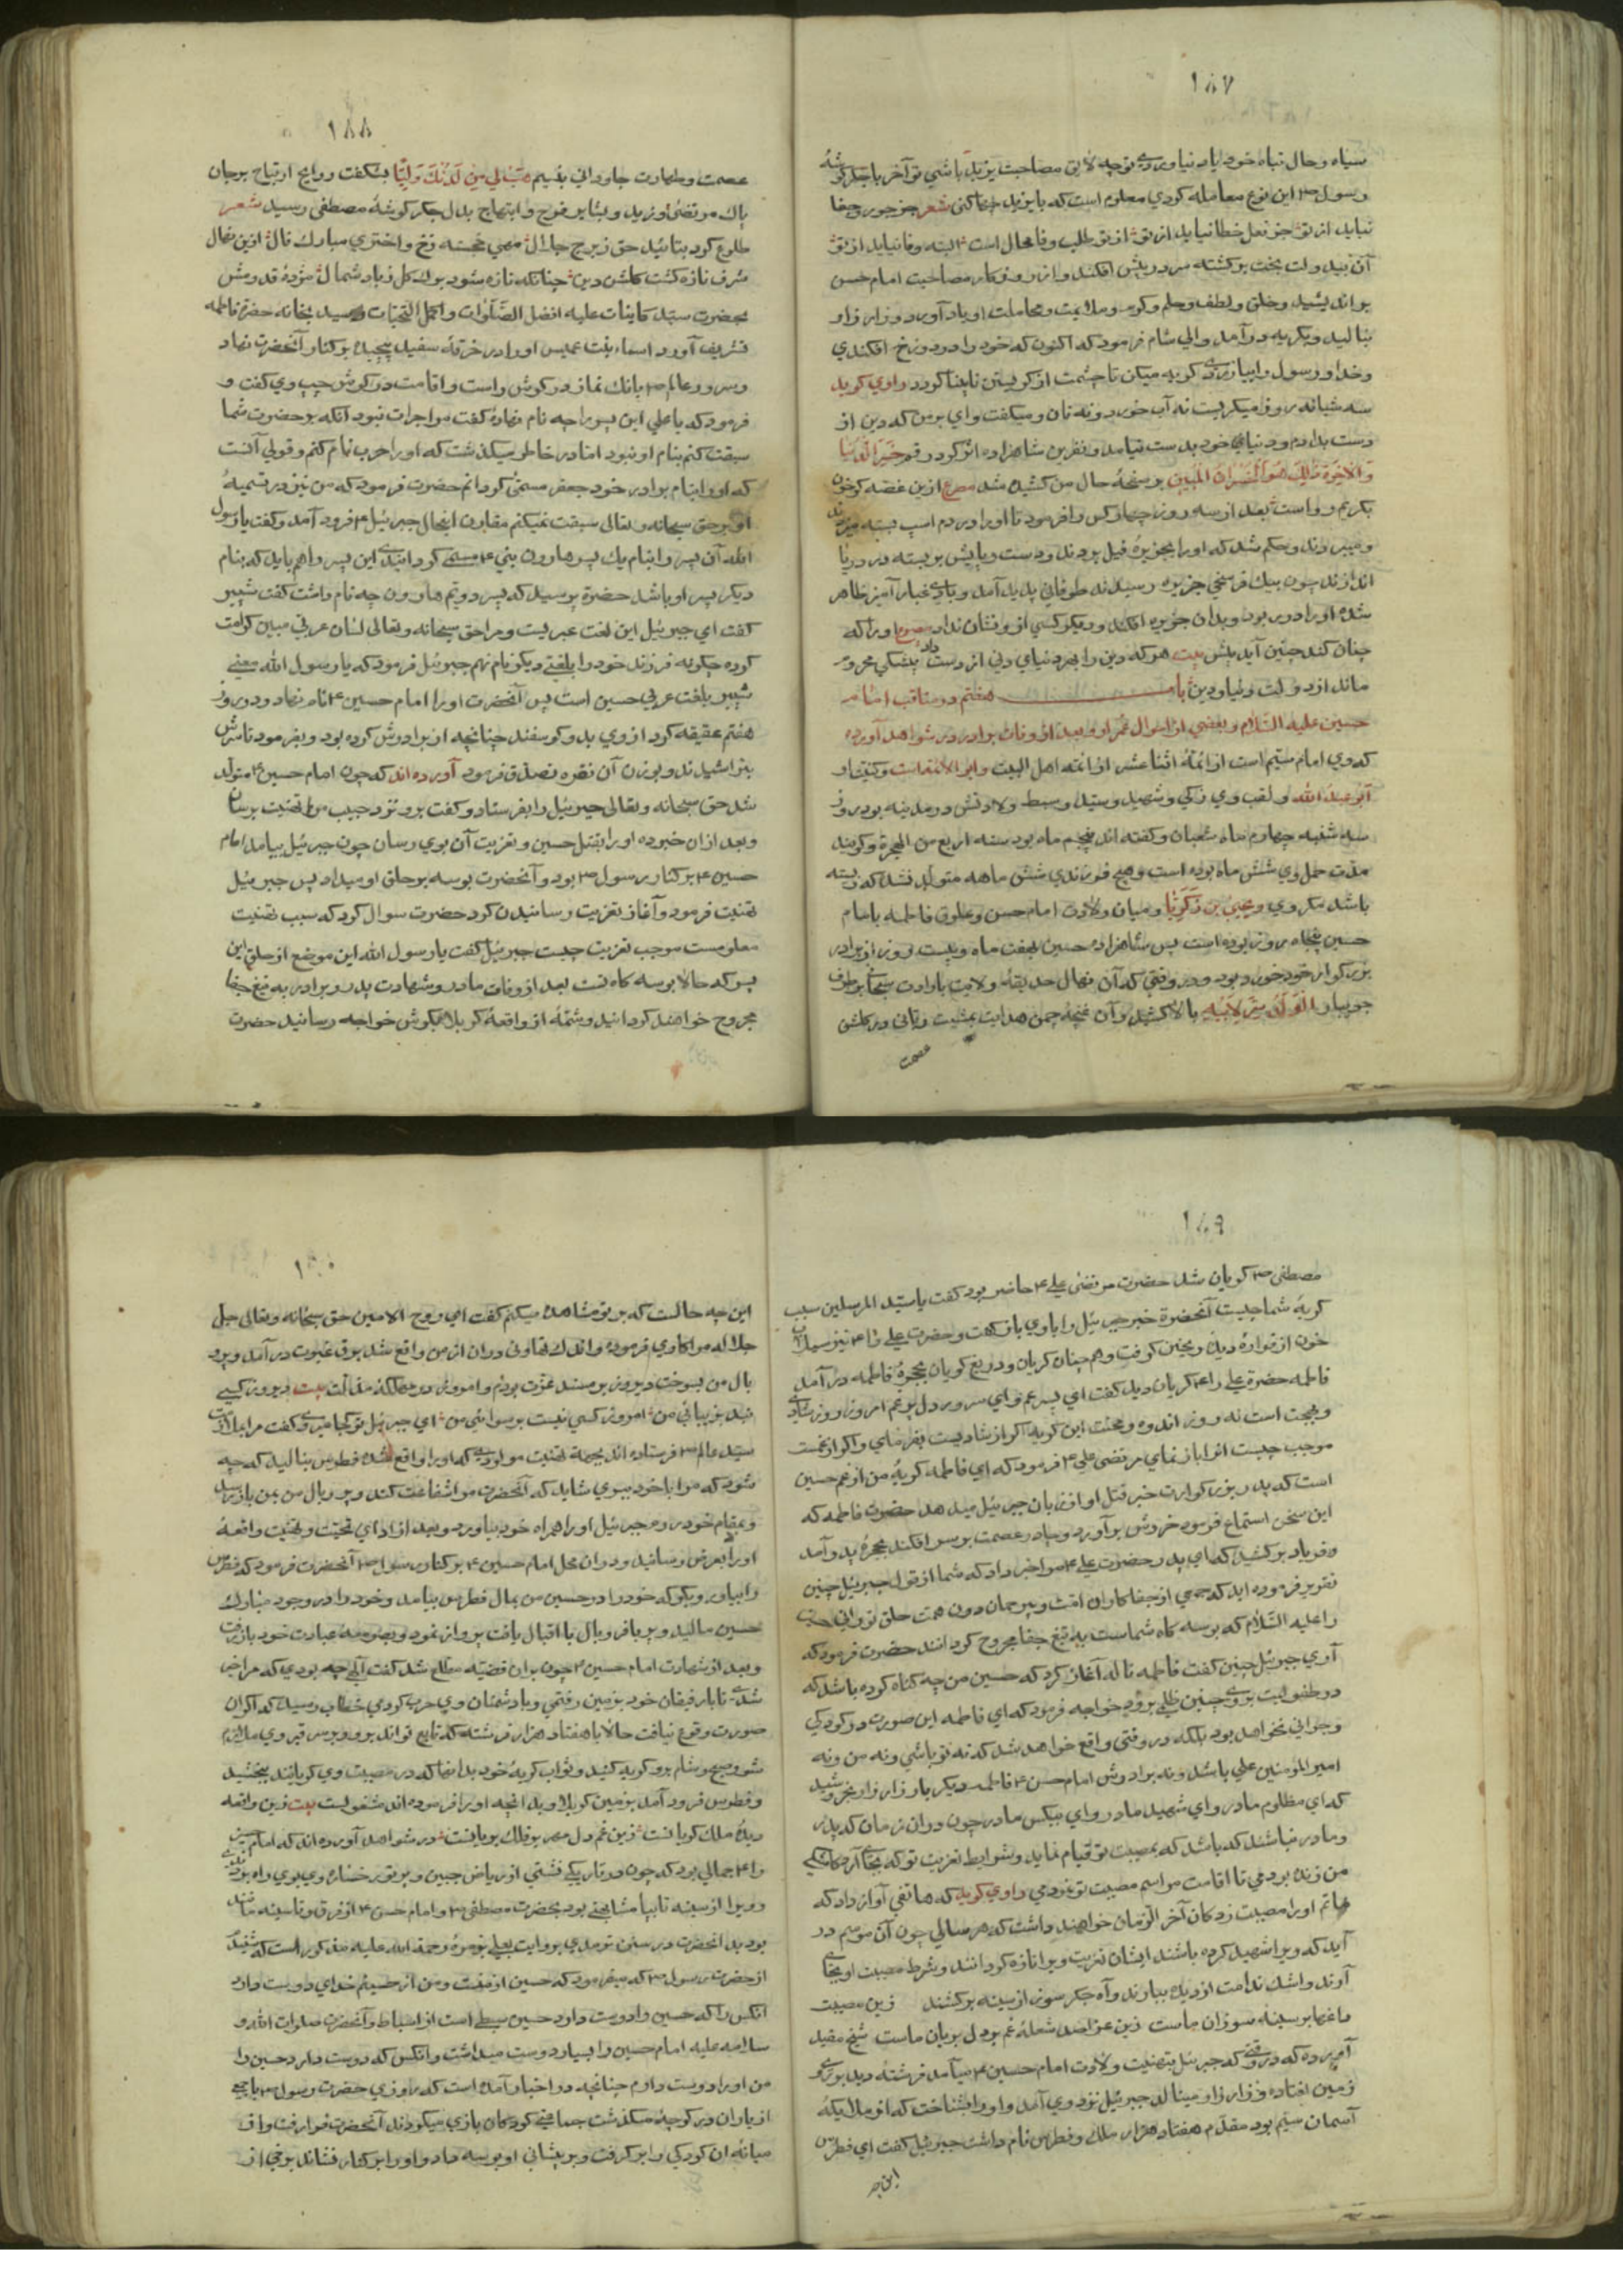 ١٨٧
سیاه و حال تباه خود یاد نیاوردی تو چه لایق مصاحبت یزید باشی تو آخر با جگر گوشهٔ
رسول ص این نوع معامله کردی معلوم است که با یزید چها کنی شعر جز جور و جفا
نیاید از تو جز فعل خطا نیاید از تو از تو طلب وفا محال است البته وفا نیاید از تو
آن بیدولت بخت برگشته سر در پیش افکند و از روزگار مصاحبت امام حسن
براندیشید و خلق و لطف و حلم و کرم و ملایمت و محاملت او یاد آورد و زار زار
بنالید و بگریه در آمد والی شام فرمود که اکنون که خود را در دوزخ افکندی
و خدا و رسول را بیازردی گریه میکن تا چشمت از گریستن نابینا گردد راوی گوید
سه شبانه روز میگریست نه آب خورد و نه نان و میگفت وای بر من که دین از
دست بدادم و دنیای خود بدست نیامد و نفرین شاهزاده اثر کرد رقم خسر الدنیا
والاخرة ذلك هو الخسران المبین بر صفحهٔ حال من کشیده شد مصرع ازین غصه گر خون
بگریم رواست بعد از سه روز چهار کس را فرمود تا او را در دم اسپ بسته میزدند
و میبردند و حکم شد که او را بجزیرهٔ فیل بردند و دست و پایش بر بسته در دریا
اندازند چون بیک فرسخی جزیره رسیدند طوفانی پدید آمد و بادی غبار آمیز ظاهر
شده او را در ربود و بدان جزیره افکند و دیگر کسی از و نشان نداد مصرع او را که
چنان کند چنین آید پیش بیت هر که دین را بهر دنیای دنی از دست داد بیشکی محروم
ماند از دولت دنیا و دین باب هفتم در مناقب امام
حسین علیه السلام و بعضی از احوال عمر او و بعد از وفات برادر در شواهد آورده
که وی امام سیم است از ائمهٔ اثنا عشر از ائمه اهل البیت و ابو الائمه است و کنیت او
ابو عبد الله و لقب وی زکی و شهید و سید و سبط ولادتش در مدینه بود روز
سه شنبه چهارم ماه شعبان و گفته اند پنجم ماه بود سنه اربع من الهجرة و گویند
مدت حمل وی شش ماه بوده است و هیچ فرزندی شش ماهه متولد نشد که زیسته
باشد مگر وی و یحیی بن زکریا و میان ولادت امام حسن و علوق فاطمه بامام
حسین پنجاه روز بوده است پس شاهزاده حسین بهفت ماه و بیست روز از برادر
بزرگوار خود خورد بود و در وقتی که آن نهال حدیقهٔ ولایت باراد ت سبحانی بر طرف
جویبار الولد سر لابیه بالا کشید و آن غنچهٔ چمن هدایت بمشیت ربانی در گلشن
عصمت
١٨٨
عصمت و طهارت جاودانی بنسیم هب لی من لدنك ولیا بشگفت روایح ارتیاح بر جان
پاك مرتضی اوزید و بشایر فرح و ابتهاج بدل جگر گوشهٔ مصطفی رسید شعر
طلوع کرد بتائید حق ز برج جلال مهی خجسته رخ و اختری مبارك فال ازین نهال
شرف تازه گشت گلشن دین چنانکه تازه شود برك گل ز باد شمال مژدهٔ قدومش
بحضرت سید کاینات علیه افضل الصلوات و اکمل التحیات رسید بخانه حضرت فاطمه
تشریف آورد اسماء بنت عمیس او را در خرقهٔ سفید پیچیده بر کنار آنحضرت نهاد
و سرور عالم ص بانك نماز در گوش راست و اقامت در گوش چپ وی گفت و
فرمود که یا علی این پسر را چه نام نهادهٔ گفت مرا جرات نبود آنکه بر حضرت شما
سبقت کنم بنام او نبود اما در خاطر میگذشت که او را حرب نام کنم و قولی آنست
که او را بنام برادر خود جعفر مسمی گردانم حضرت فرمود که من نیز در تسمیهٔ
او بر حق سبحانه و تعالی سبقت نمیکنم مقارن اینحال جبرئیل ع فرود آمد و گفت یا رسول
الله آن پسر را بنام یك پسر هارون بنی ع مسمی گردانیدی این پسر را هم باید که بنام
دیگر پسر او باشد حضرة پرسید که پسر دویم هارون چه نام داشت گفت شبیر
گفت ای جبرئیل این لغت عبریست و مرا حق سبحانه و تعالی لسان عربی مبین کرامت
کرده چگونه فرزند خود را بلغتی دیگر نام نهم جبرئیل فرمود که یا رسول الله معنی
شبیر بلغت عربی حسین است پس آنحضرت او را امام حسین ع نام نهاد و در روز
هفتم عقیقه کرد از وی بدو گوسفند چنانچه از برادرش کرده بود و بفرمود تا سرش
بتراشیدند و بوزن آن نقره تصدق فرمود آورده اند که چون امام حسین ع متولد
شد حق سبحانه و تعالی جبرئیل را بفرستاد و گفت برو نزد حبیب من تهنیت برسان
و بعد ازان خبر ده او را بقتل حسین و تعزیت آن بوی رسان چون جبرئیل بیامد امام
حسین ع بر کنار رسول ص بود و آنحضرت بوسه بر حلق او میداد پس جبرئیل
تهنیت فرمود و آغاز تعزیت رسانیدن کرد حضرت سوال کرد که سبب تهنیت
معلومست موجب تعزیت چیست جبرئیل گفت یا رسول الله این موضع از حلق این
پسر که حالا بوسه گاه تست بعد از وفات مادر و شهادت پدر و برادر به تیغ جفا
مجروح خواهند گردانید و شمهٔ از واقعهٔ کربلا بگوش خواجه رسانید حضرت
١٨٩
مصطفی ص گریان شد حضرت مرتضی علی ع حاضر بود گفت یا سید المرسلین سبب
گریهٔ شما چیست آنحضرة خبر جبرئیل را با وی باز گفت و حضرت علی را ع نیز سیلاب
خون از فوارهٔ دیده ریختن گرفت و هم چنان گریان و دریغ گویان بحجرهٔ فاطمه در آمد
فاطمه حضرة علی را ع گریان دید گفت ای پسر عم و ای سرور دل پر غم امروز روز شادی
و بهجت است نه روز اندوه و محنت این گریه اگر از شادیست بفرمای و اگر از غمست
موجب چیست انرا باز نمای مرتضی علی ع فرمود که ای فاطمه گریهٔ من از غم حسین
است که پدر بزرگوارت خبر قتل او از زبان جبرئیل میدهد حضرت فاطمه که
این سخن استماع فرمود خروش بر آورد و چادر عصمت بر سر افکند بحجرهٔ پدر آمد
و فریاد بر کشید که ای پدر حضرت علی ع مرا خبر داد که شما از قول جبرئیل چنین
تقریر فرموده اید که جمعی از جفا کاران امت و بیرحمان دون همت حلق نورانی حسین
را علیه السلام که بوسه گاه شماست به تیغ جفا مجروح گردانند حضرت فرمود که
آری جبرئیل چنین گفت فاطمه ناله آغاز کرد که حسین من چه گناه کرده باشد که
در طفولیت بروی چنین ظلمی برود خواجه فرمود که ای فاطمه این صورت در کودکی
و جوانی نخواهد بود بلکه در وقتی واقع خواهد شد که نه تو باشی و نه من و نه
امیر المؤمنین علی باشد و نه برادرش امام حسن ع فاطمه دیگر بار زار زار بخروشید
که ای مظلوم مادر و ای شهید مادر و ای بیکس مادر چون دران زمان که پدر
و مادر نباشند که باشد که بمصیبت تو قیام نماید و شرایط تعزیت تو که بجا آرد کاشکی
من زنده بودمی تا اقامت مراسم مصیبت تو نمودمی راوی گوید که هاتفی آواز داد که
ماتم او را مصیبت زدگان آخر الزمان خواهند داشت که هر سالی چون آن موسم در
آید که ویرا شهید کرده باشند ایشان تعزیت ویرا تازه گردانند و شرط مصیبت او بجای
آرند و اشك ندامت از دیده ببارند و آه جگر سوز از سینه بر کشند زین مصیبت
داغها بر سینه سوزان ماست زین عزا صد شعلهٔ غم بر دل بریان ماست شیخ مفید
آورده که در وقتی که جبرئیل بتهنیت ولادت امام حسین ع میآمد فرشتهٔ دید بر روی
زمین افتاده و زار زار مینالد جبرئیل نزد وی آمد و او را بشناخت که از ملایکهٔ
آسمان سیم بود مقدم هفتاد هزار ملك و فطرس نام داشت جبرئیل گفت ای فطرس
این چه
١٩٠
این چه حالست که بر تو مشاهده میکنم گفت ای روح الامین حق سبحانه و تعالی جل
جلاله مرا کاری فرموده و اندك تهاونی دران از من واقع شد برق غیرت در آمد و پر و
بال من بسوخت دیروز بر مسند عزت بودم و امروز در مهلکه مذلت بیت دیروز کسی
نبد بزیبائی من امروز کسی نیست برسوائی من ای جبرئیل تو کجا میروی گفت مرا بملازمت
سید عالم ص فرستاده اند بجهة تهنیت مولودی که او را واقع شده فطرس بنالید که چه
شود که مرا با خود ببری شاید که آنحضرت مرا شفاعت کند و پر و بال من بمن باز رسد
و بمقام خود روم جبرئیل او را همراه خود بیاورد و بعد از ادای تحیت و تهنیت واقعهٔ
او را بعرض رسانید و دران محل امام حسین ع بر کنار رسول ص آنحضرت فرمود که فطرس
را بیاور و بگو که خود را در حسین من بمال فطرس بیامد و خود را در وجود مبارك
حسین مالید و پر یافر و بال با اقبال یافت پرواز نمود و بصومعهٔ عبادت خود باز رفت
و بعد از شهادت امام حسین ع چون بران قضیه مطلع شد گفت الهی چه بودی که مرا خبر
شدی تا با رفیقان خود بزمین رفتمی و با دشمنان وی حرب کردمی خطاب رسید که اگر آن
صورت وقوع نیافت حالا با هفتاد هزار فرشته که تابع تو اند برو و بر سر قبر وی ملازم
شو و صبح و شام برو گریه کنید و ثواب گریهٔ خود بدانها که در مصیبت وی گریانند ببخشید
و فطرس فرود آمد بزمین کربلا و بدانچه او را فرموده اند مشغولست بیت زین واقعه
دیدهٔ ملك گریانست زین غم دل مهر بر فلك بریانست در شواهد آورده اند که امام حسین
را ع جمالی بود که چون در تاریکی نشستی از ریاض جبین و پرتو رخسارهٔ وی بوی راه بردندی
و ویرا از سینه تا بپا مشابهتی بود بحضرت مصطفی ص و امام حسن ع از فرق تا سینه مانند
بود بدانحضرت در سنن ترمدی بروایت یعلی بن مره رحمة الله علیه مذکور است که شنیدم
از حضرت رسول ص که میفرمود که حسین از منست و من از حسینم خدای دوست دارد
انکس را که حسین را دوست دارد حسین سبطی است از اسباط و آنحضرت صلوات الله و
سلامه علیه امام حسین را بسیار دوست میداشت و انکس که دوست دارد حسین را
من او را دوست دارم چنانچه در اخبار آمده است که روزی حضرت رسول ص با جمعی
از یاران در کوچهٔ میگذشت جماعتی کودکان بازی میکردند آنحضرت فرا رفت و از
میانهٔ ان کودکی را بر گرفت و بر پیشانی او بوسه داد و او را بر کنار نشاند برخی از